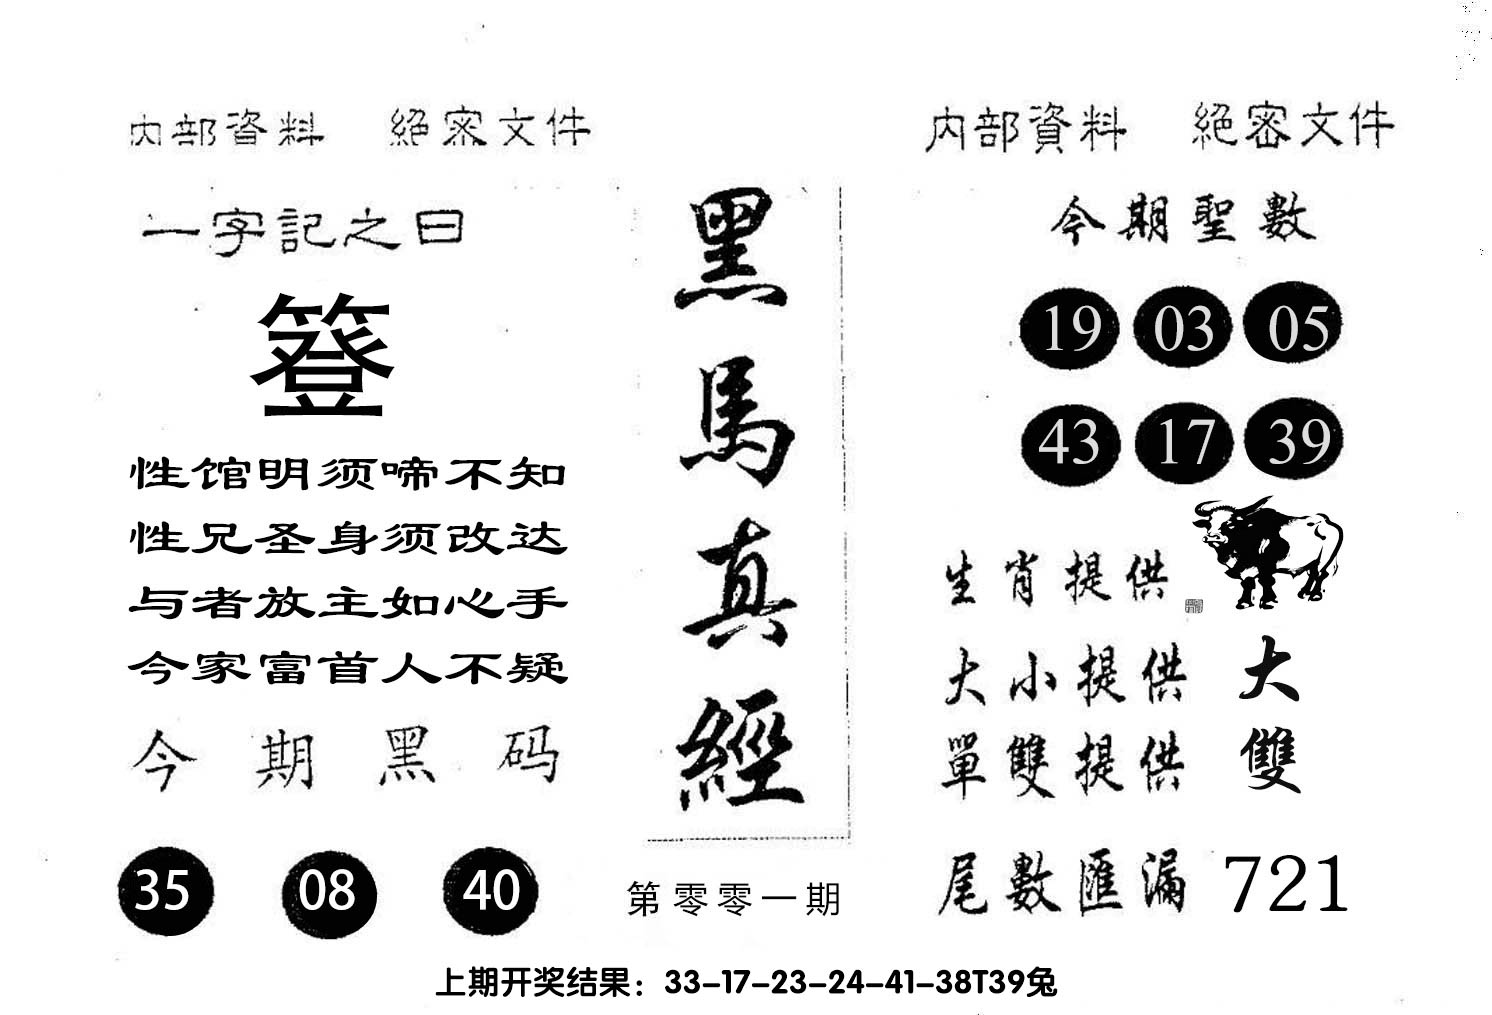 内部資料 絕密文件
一字記之曰
簦
性馆明须啼不知
性兄圣身须改达
与者放主如心手
今家富首人不疑
今期黑码
35 08 40
黑馬真經
第零零一期
内部資料 絕密文件
今期聖數
19 03 05
43 17 39
生肖提供
大小提供 大
單雙提供 雙
尾數匯漏 721
上期开奖结果：33-17-23-24-41-38T39兔